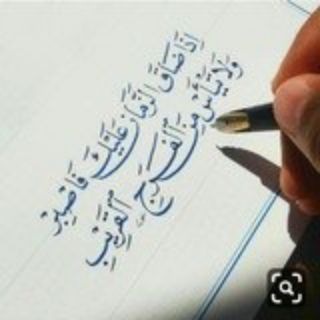 إذا ضاق الزمان عليك فاصبر
ولا تيأس من الفرج القريب